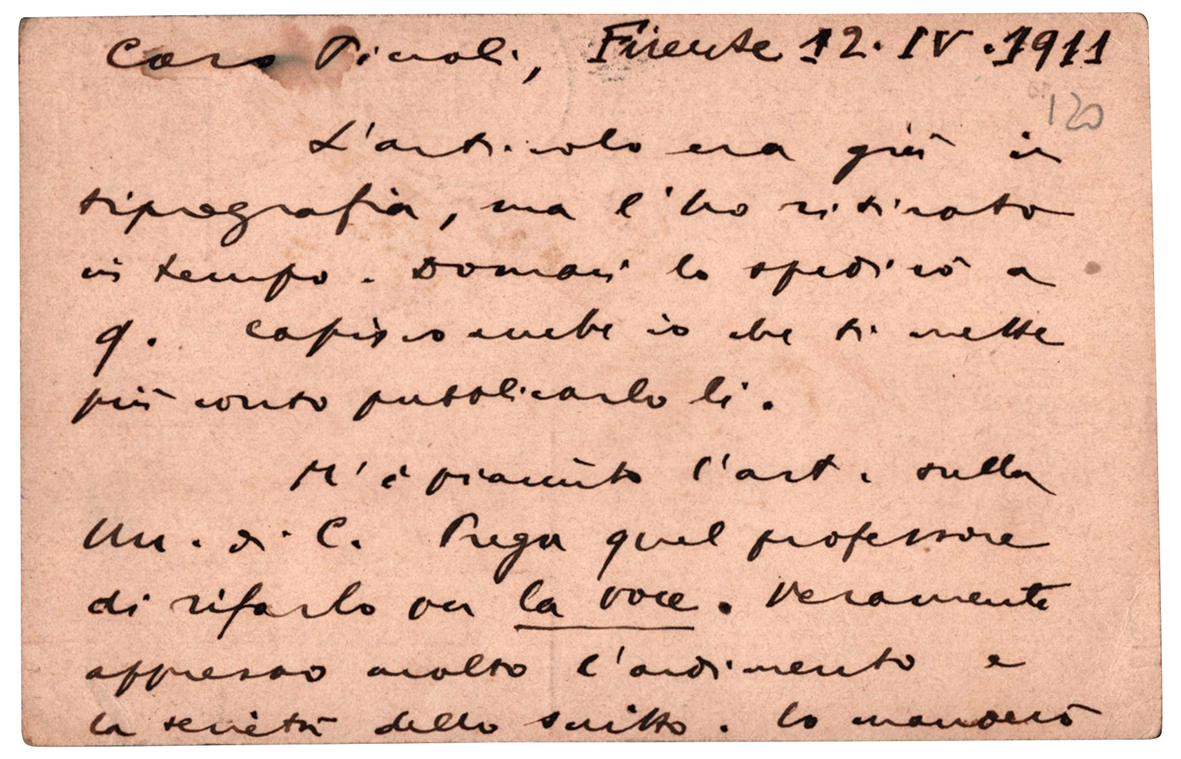 Caro Piccoli, Firenze 12. IV. 1911
120
L'articolo era già in
tipografia, ma l'ho ritirato
in tempo. Domani lo spedirò a
Capisco anche io che ti mette
più conto pubblicarlo lì.
M'è piaciuto l'art. sulla
Un. di C. Prega quel professore
di rifarlo per la Voce. Veramente
apprezzo molto l'ardimento e
la serietà dello scritto. Lo manderò